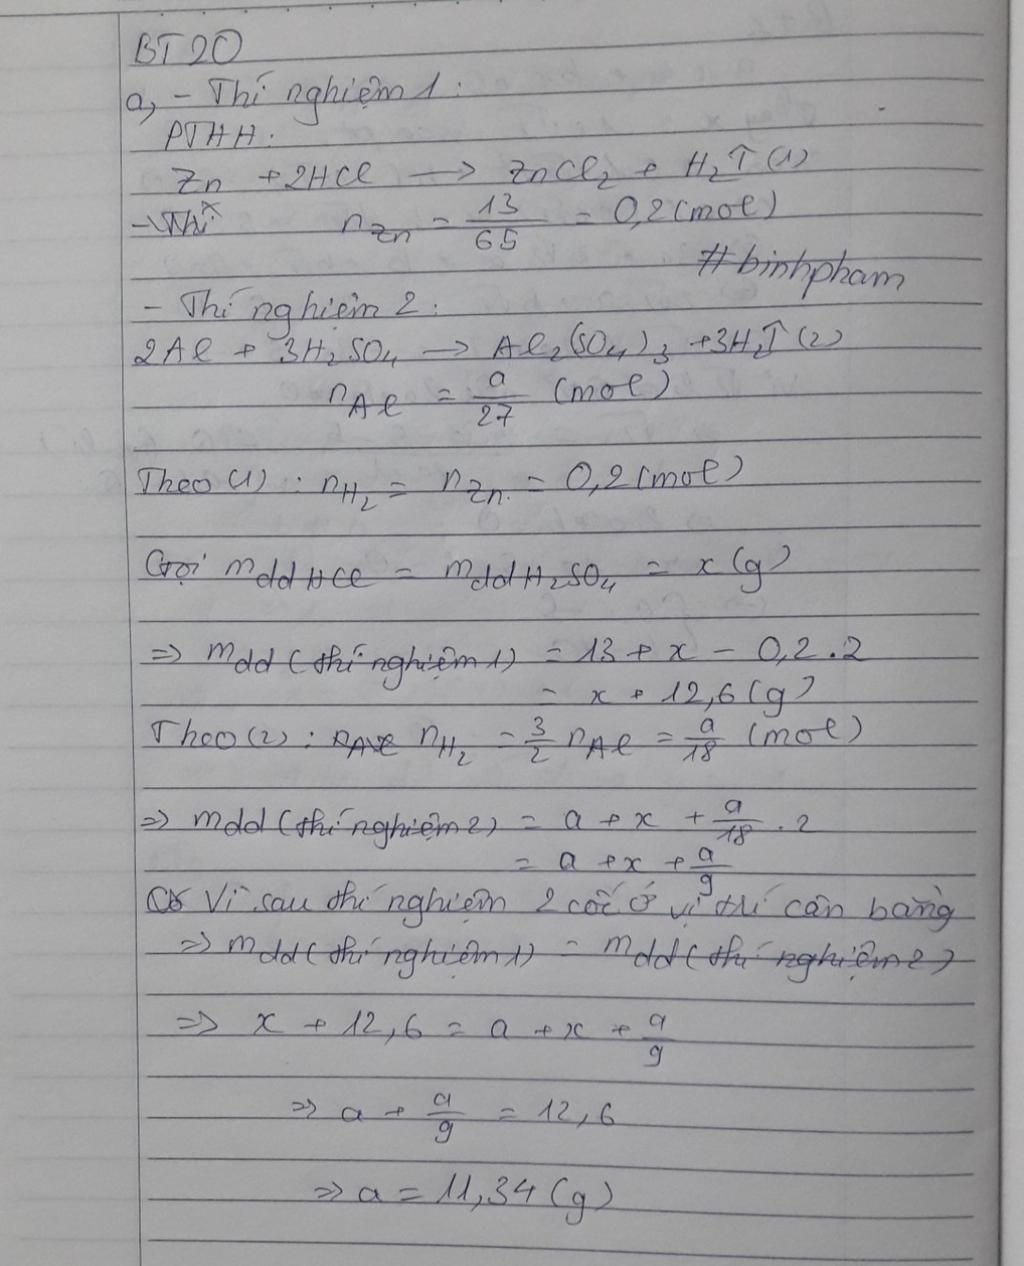 BT20
a, - Thí nghiệm 1:
PTHH:
Zn + 2HCl → ZnCl₂ + H₂↑ (1)
- Thí nZn = 13/65 = 0,2 (mol)
#binhpham
- Thí nghiệm 2:
2Al + 3H₂SO₄ → Al₂(SO₄)₃ + 3H₂↑ (2)
nAl = a/27 (mol)
Theo (1): nH₂ = nZn = 0,2 (mol)
Gọi mddHCl = mddH₂SO₄ = x (g)
⇒ mdd (thí nghiệm 1) = 13 + x - 0,2 . 2
= x + 12,6 (g)
Theo (2): nH₂ = 3/2 nAl = a/18 (mol)
⇒ mdd (thí nghiệm 2) = a + x + a/18 . 2
= a + x + a/9
Vì sau thí nghiệm 2 cốc ở vị trí cân bằng
⇒ mdd (thí nghiệm 1) = mdd (thí nghiệm 2)
⇒ x + 12,6 = a + x + a/9
⇒ a + a/9 = 12,6
⇒ a = 11,34 (g)